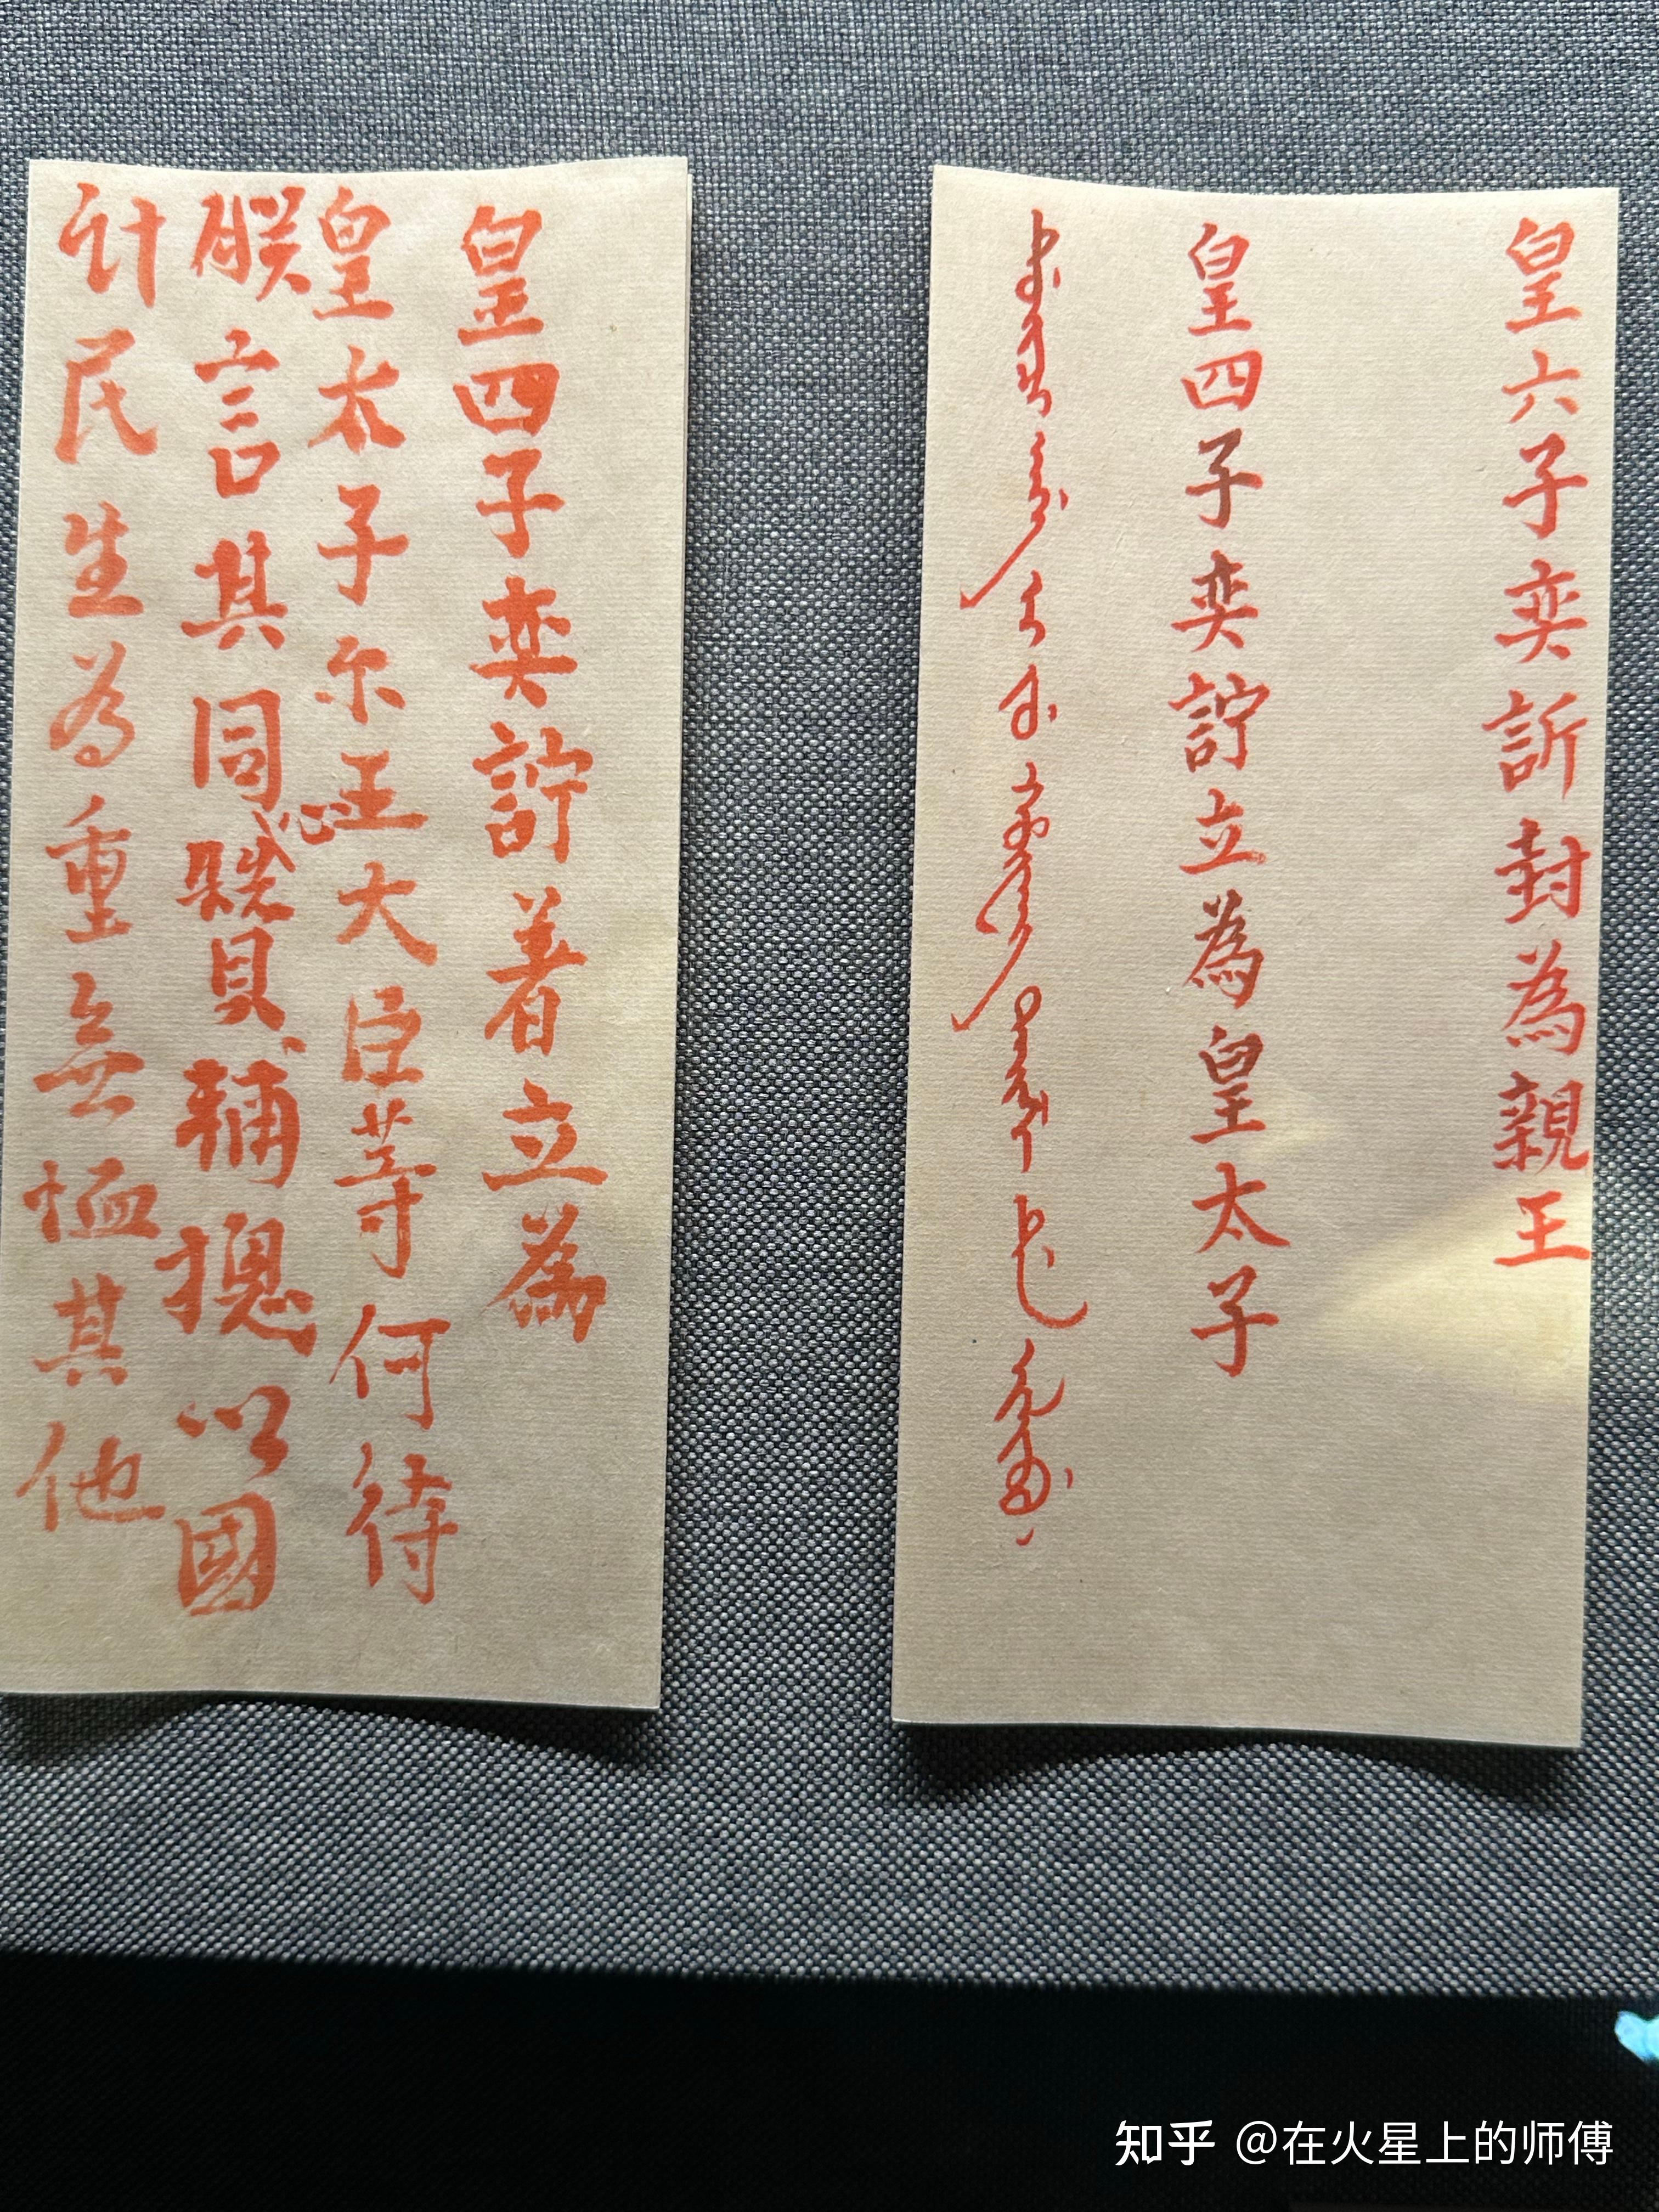 皇六子奕訢封為親王
皇四子奕詝立為皇太子
皇四子奕詝著立為
皇太子尔王大臣等何待
朕言其同心贊輔摠以國
計民生為重無恤其他
知乎 @在火星上的师傅